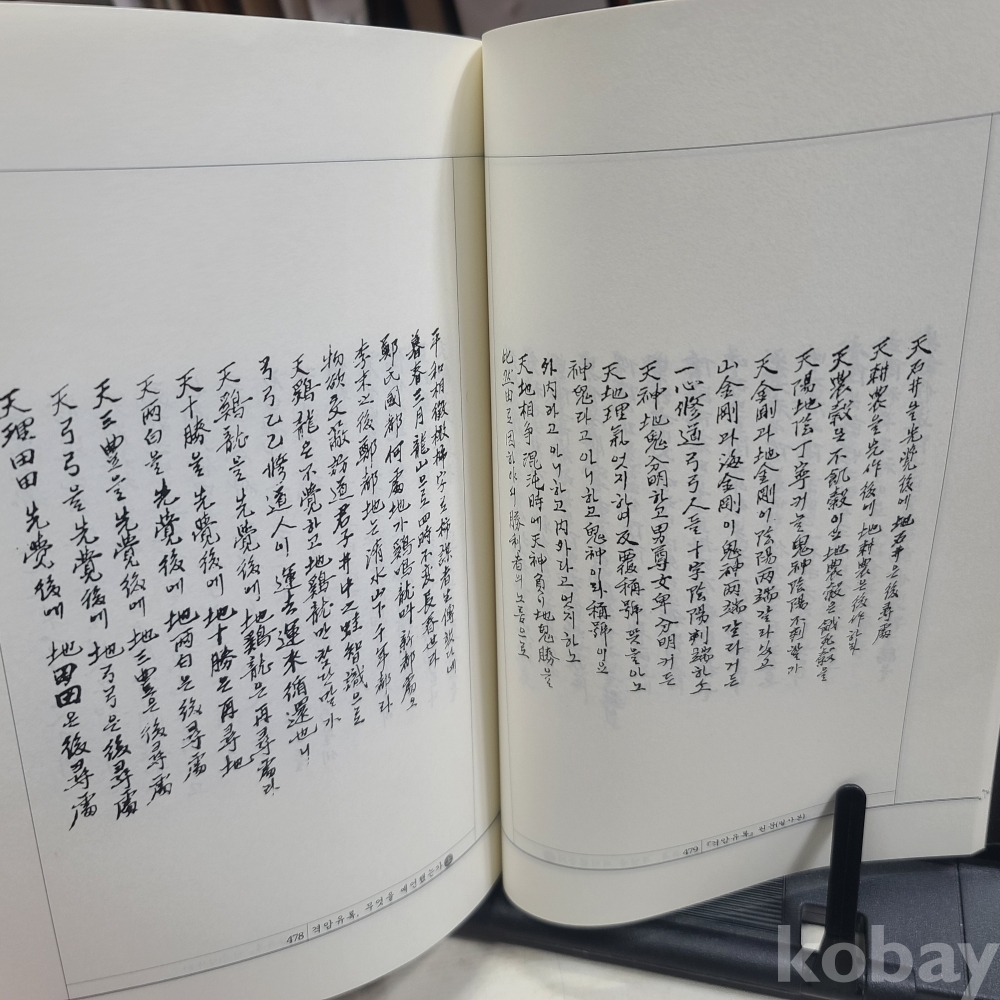 平和相徵橄㭁字로 柿謀者生傳했다네
暮春三月龍山으로 四時不變長春世라
鄭氏國都何處地가 鷄鳴龍叫新都處요
李末之後鄭都地는 淸水山下千年都라
物欲交蔽訪道君子 井中之蛙智識으로
天鷄龍은 不覺하고 地鷄龍만 찾단말가
弓弓乙乙修道人이 運去運來循還也니
天鷄龍을 先覺後에 地鷄龍은 再尋處라
天十勝을 先覺後에 地十勝은 再尋地
天两白을 先覺後에 地两白은 後尋處
天三豊을 先覺後에 地三豊은 後尋處
天弓弓을 先覺後에 地弓弓은 後尋處
天理田田 先覺後에 地田田은 後尋處
478 격암유록, 무엇을 예언했는가
天石井을 先覺後에 地石井은 後尋處
天耕農을 先作後에 地耕農은 後作하라
天農穀은 不飢穀이요 地農穀은 餓死穀을
天陽地陰 丁寧커늘 鬼神陰陽 不判할가
天金剛과 地金剛이 陰陽两端갈라있고
山金剛과 海金剛이 鬼神两端갈라거든
一心修道弓弓人들 十字陰陽判端하소
天神地鬼分明하고 男尊女卑分明거든
天地理氣엇지하여 反覆稱號뜻을아노
神鬼라고아니하고 鬼神이라稱號이요
外内라고아니하고 内外라고엇지하노
天地相争混沌時에 天神負이 地鬼勝을
比然由로因하야서 勝利者의노름으로
479 『격암유록』 원전
kobay